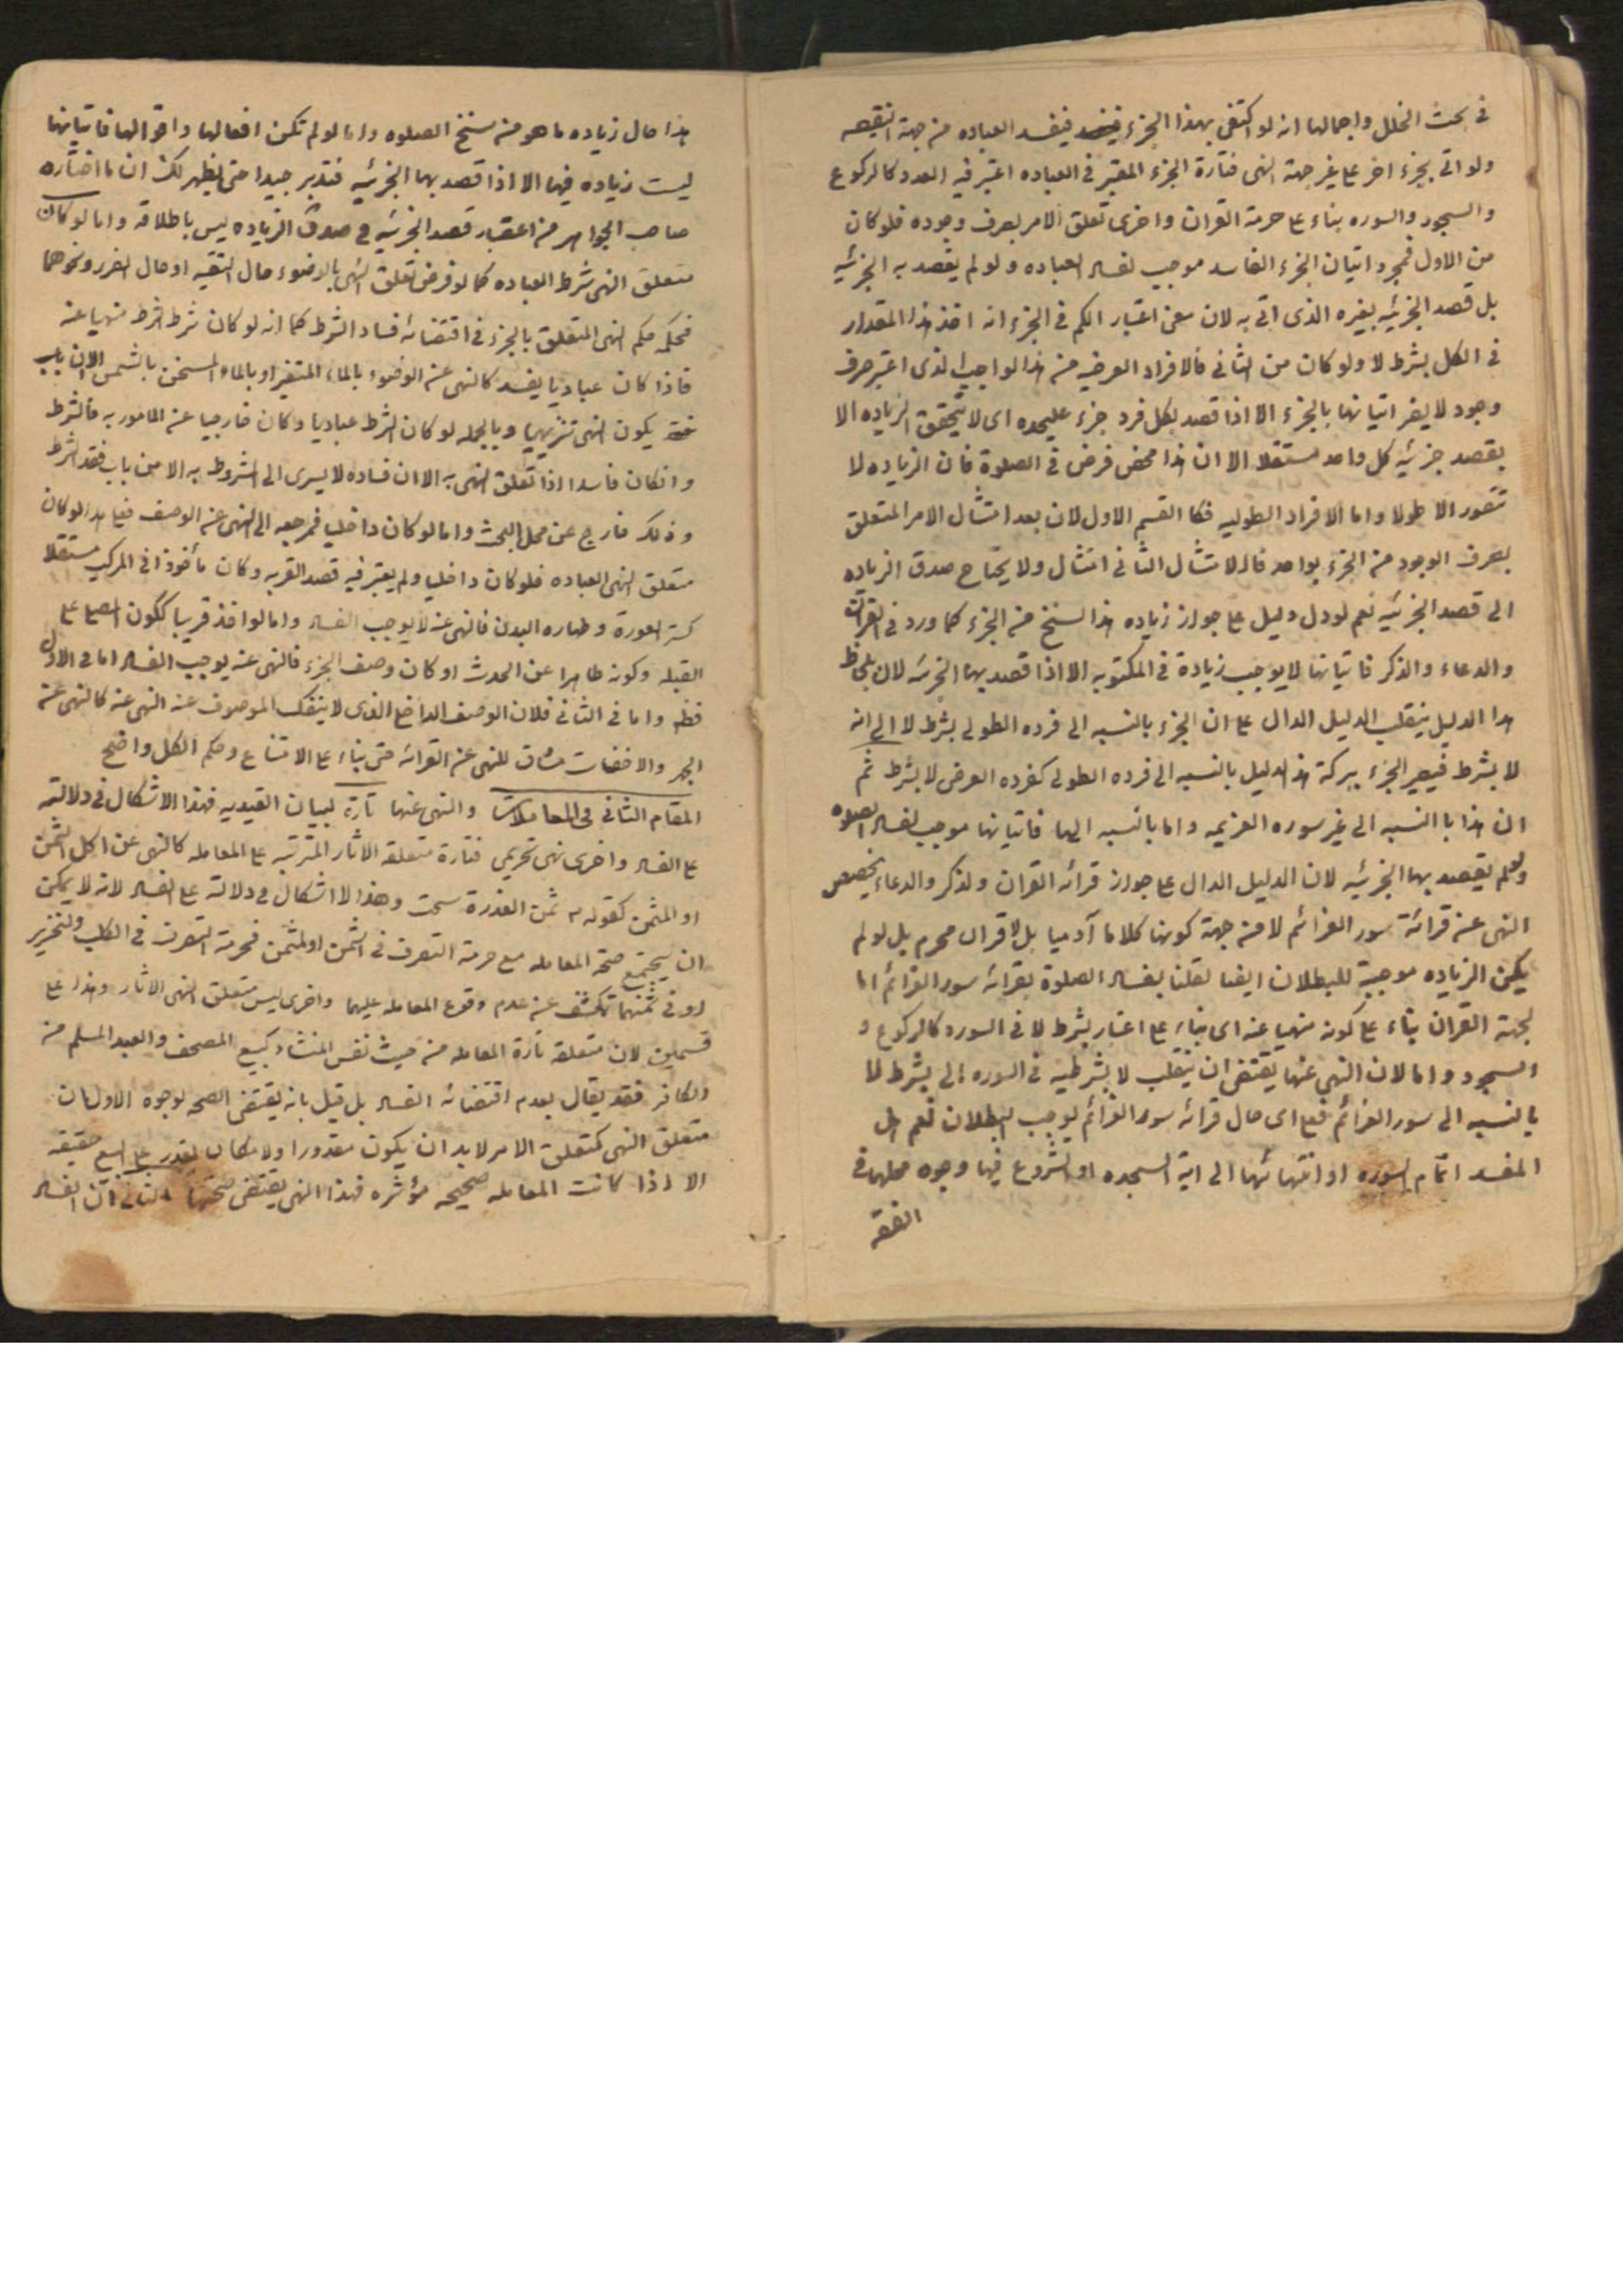 في بحث الخلل واجمالها انه لو اكتفى بهذا الجزء فيفسد العباده من جهة النقيصه
ولو اتى بجزء اخر على غير جهة النهى فتارة الجزء المعتبر في العباده اعتبر فيه العدد كالركوع
والسجود والسوره بناء على حرمة القران واخرى تعلق الامر بصرف وجوده فلو كان
من الاول فمجرد اتيان الجزء الفاسد موجب لفساد العباده ولو لم يقصد به الجزئيه
بل قصد الجزئيه بغيره الذى اتى به لان معنى اعتبار الكم في الجزء انه اخذ هذا المقدار
في الكل بشرط لا ولو كان من الثانى فالافراد العرضيه من هذا الواجب الذى اعتبر صرف
وجود لا يضر اتيانها بالجزء الا اذا قصد بكل فرد جزء عليحده اى لا يتحقق الزياده الا
بقصد جزئيه كل واحد مستقلا الا ان هذا محض فرض في الصلوة فان الزياده لا
تتصور الا طولا واما الافراد الطوليه فكا القسم الاول لان بعد امتثال الامر المتعلق
بصرف الوجود من الجزء بواحد فالامتثال الثانى امتثال ولا يحتاج صدق الزياده
الى قصد الجزئيه نعم لو دل دليل على جواز زياده هذا السنخ من الجزء كما ورد في القرائت
والدعاء والذكر فاتيانها لا يوجب زيادة في المكتوبه الا اذا قصد بهما الجزئيه لان بلحاظ
هذا الدليل ينقلب الدليل الدال على ان الجزء بالنسبه الى فرده الطولى بشرط لا الى انه
لا بشرط فيصير الجزء ببركة هذا الدليل بالنسبه الى فرده الطولى كفرده العرضى لا بشرط ثم
ان هذا با النسبه الى غير سوره العزيمه واما بالنسبه اليها فاتيانها موجب لفساد الصلوه
ولو لم يقصد بها الجزئيه لان الدليل الدال على جواز قرائه القران والذكر والدعاء يخصص
النهى عن قرائة سور العزائم لا من جهة كونها كلاما آدميا بل لا قران محرم بل لو لم
يكن الزياده موجبة للبطلان ايضا لقلنا بفساد الصلوة بقرائه سور العزائم اما
لجهة القران بناء على كونه منهيا عنه اى بناء على اعتبار بشرط لا في السوره كالركوع و
السجود واما لان النهى عنها يقتضى ان ينقلب لا بشرطيه في السوره الى بشرط لا
بالنسبه الى سور العزائم فعلى اى حال قرائه سور العزائم يوجب البطلان نعم هل
المفسد اتمام السوره او انتهائها الى اية السجده او الشروع فيها وجوه محلها في
الفقه
هذا حال زياده ما هو من سنخ الصلوه واما لو لم تكن افعالها واقوالها فاتيانها
ليست زياده فيها الا اذا قصد بها الجزئيه فتدبر جيدا حتى يظهر لك ان ما اختاره
صاحب الجواهر من اعتبار قصد الجزئيه في صدق الزياده ليس باطلاقه واما لو كان
متعلق النهى شرط العباده كما لو فرض تعلق النهى بالوضوء حال التقيه او حال الضرر ونحوهما
فحكمه حكم النهى المتعلق بالجزء في اقتضائه فساد الشرط كما انه لو كان شرط الشرط منهيا عنه
فاذا كان عباديا يفسد كالنهى عن الوضوء بالماء المتغير او بالماء المسخن بالشمس الا ان
يكون النهى تنزيهيا وبالجمله لو كان الشرط عباديا وكان خارجيا عن المامور به فالشرط
وانكان فاسدا اذا تعلق النهى به الا ان فساده لا يسرى الى المشروط به الا من باب فقد الشرط
وذلك خارج عن محل البحث واما لو كان داخليا فمرجعه الى النهى عن الوصف فعلى هذا لو كان
متعلق النهى العباده فلو كان داخليا ولم يعتبر فيه قصد القربه وكان مأخوذا في المركب مستقلا
كستر العورة وطهاره البدن فالنهى عنه لا يوجب الفساد واما لو اخذ قريبا ككون المصلى على
القبله وكونه طاهرا عن الحدث او كان وصف الجزء فالنهى عنه يوجب الفساد اما في الاول
فظهر واما في الثانى فلان الوصف الداخلى الذى لا ينفك الموصوف عنه النهى عنه كالنهى عن
الجهر والاخفات مناف للنهى عن القرائه حتى بناء على الامتناع وحكم الكل واضح
المقام الثانى في المعاملات والنهى عنها تارة لبيان القيديه فهذا لا اشكال في دلالته
على الفساد واخرى نهى تحريمى فتارة متعلقه الاثار المترتبه على المعامله كالنهى عن اكل الثمن
او المثمن كقوله ثمن العذرة سحت وهذا لا اشكال في دلالته على الفساد لانه لا يمكن
ان يجتمع صحة المعامله مع حرمة التصرف في الثمن او المثمن فحرمة التصرف في الكلب والخنزير
او في ثمنهما تكشف عن عدم وقوع المعامله عليهما واخرى ليس متعلق النهى الاثار وهذا على
قسمين لان متعلقه تارة المعامله من حيث نفس المنشاء كبيع المصحف والعبد المسلم من
الكافر فقد يقال بعدم اقتضائه الفساد بل قيل بانه يقتضى الصحه لوجوه الاول ان
متعلق النهى كمتعلق الامر لابد ان يكون مقدورا ولا مكان لقدره على البيع حقيقه
الا اذا كانت المعامله صحيحه مؤثره فهذا النهى يقتضى صحتها الثانى ان الفساد